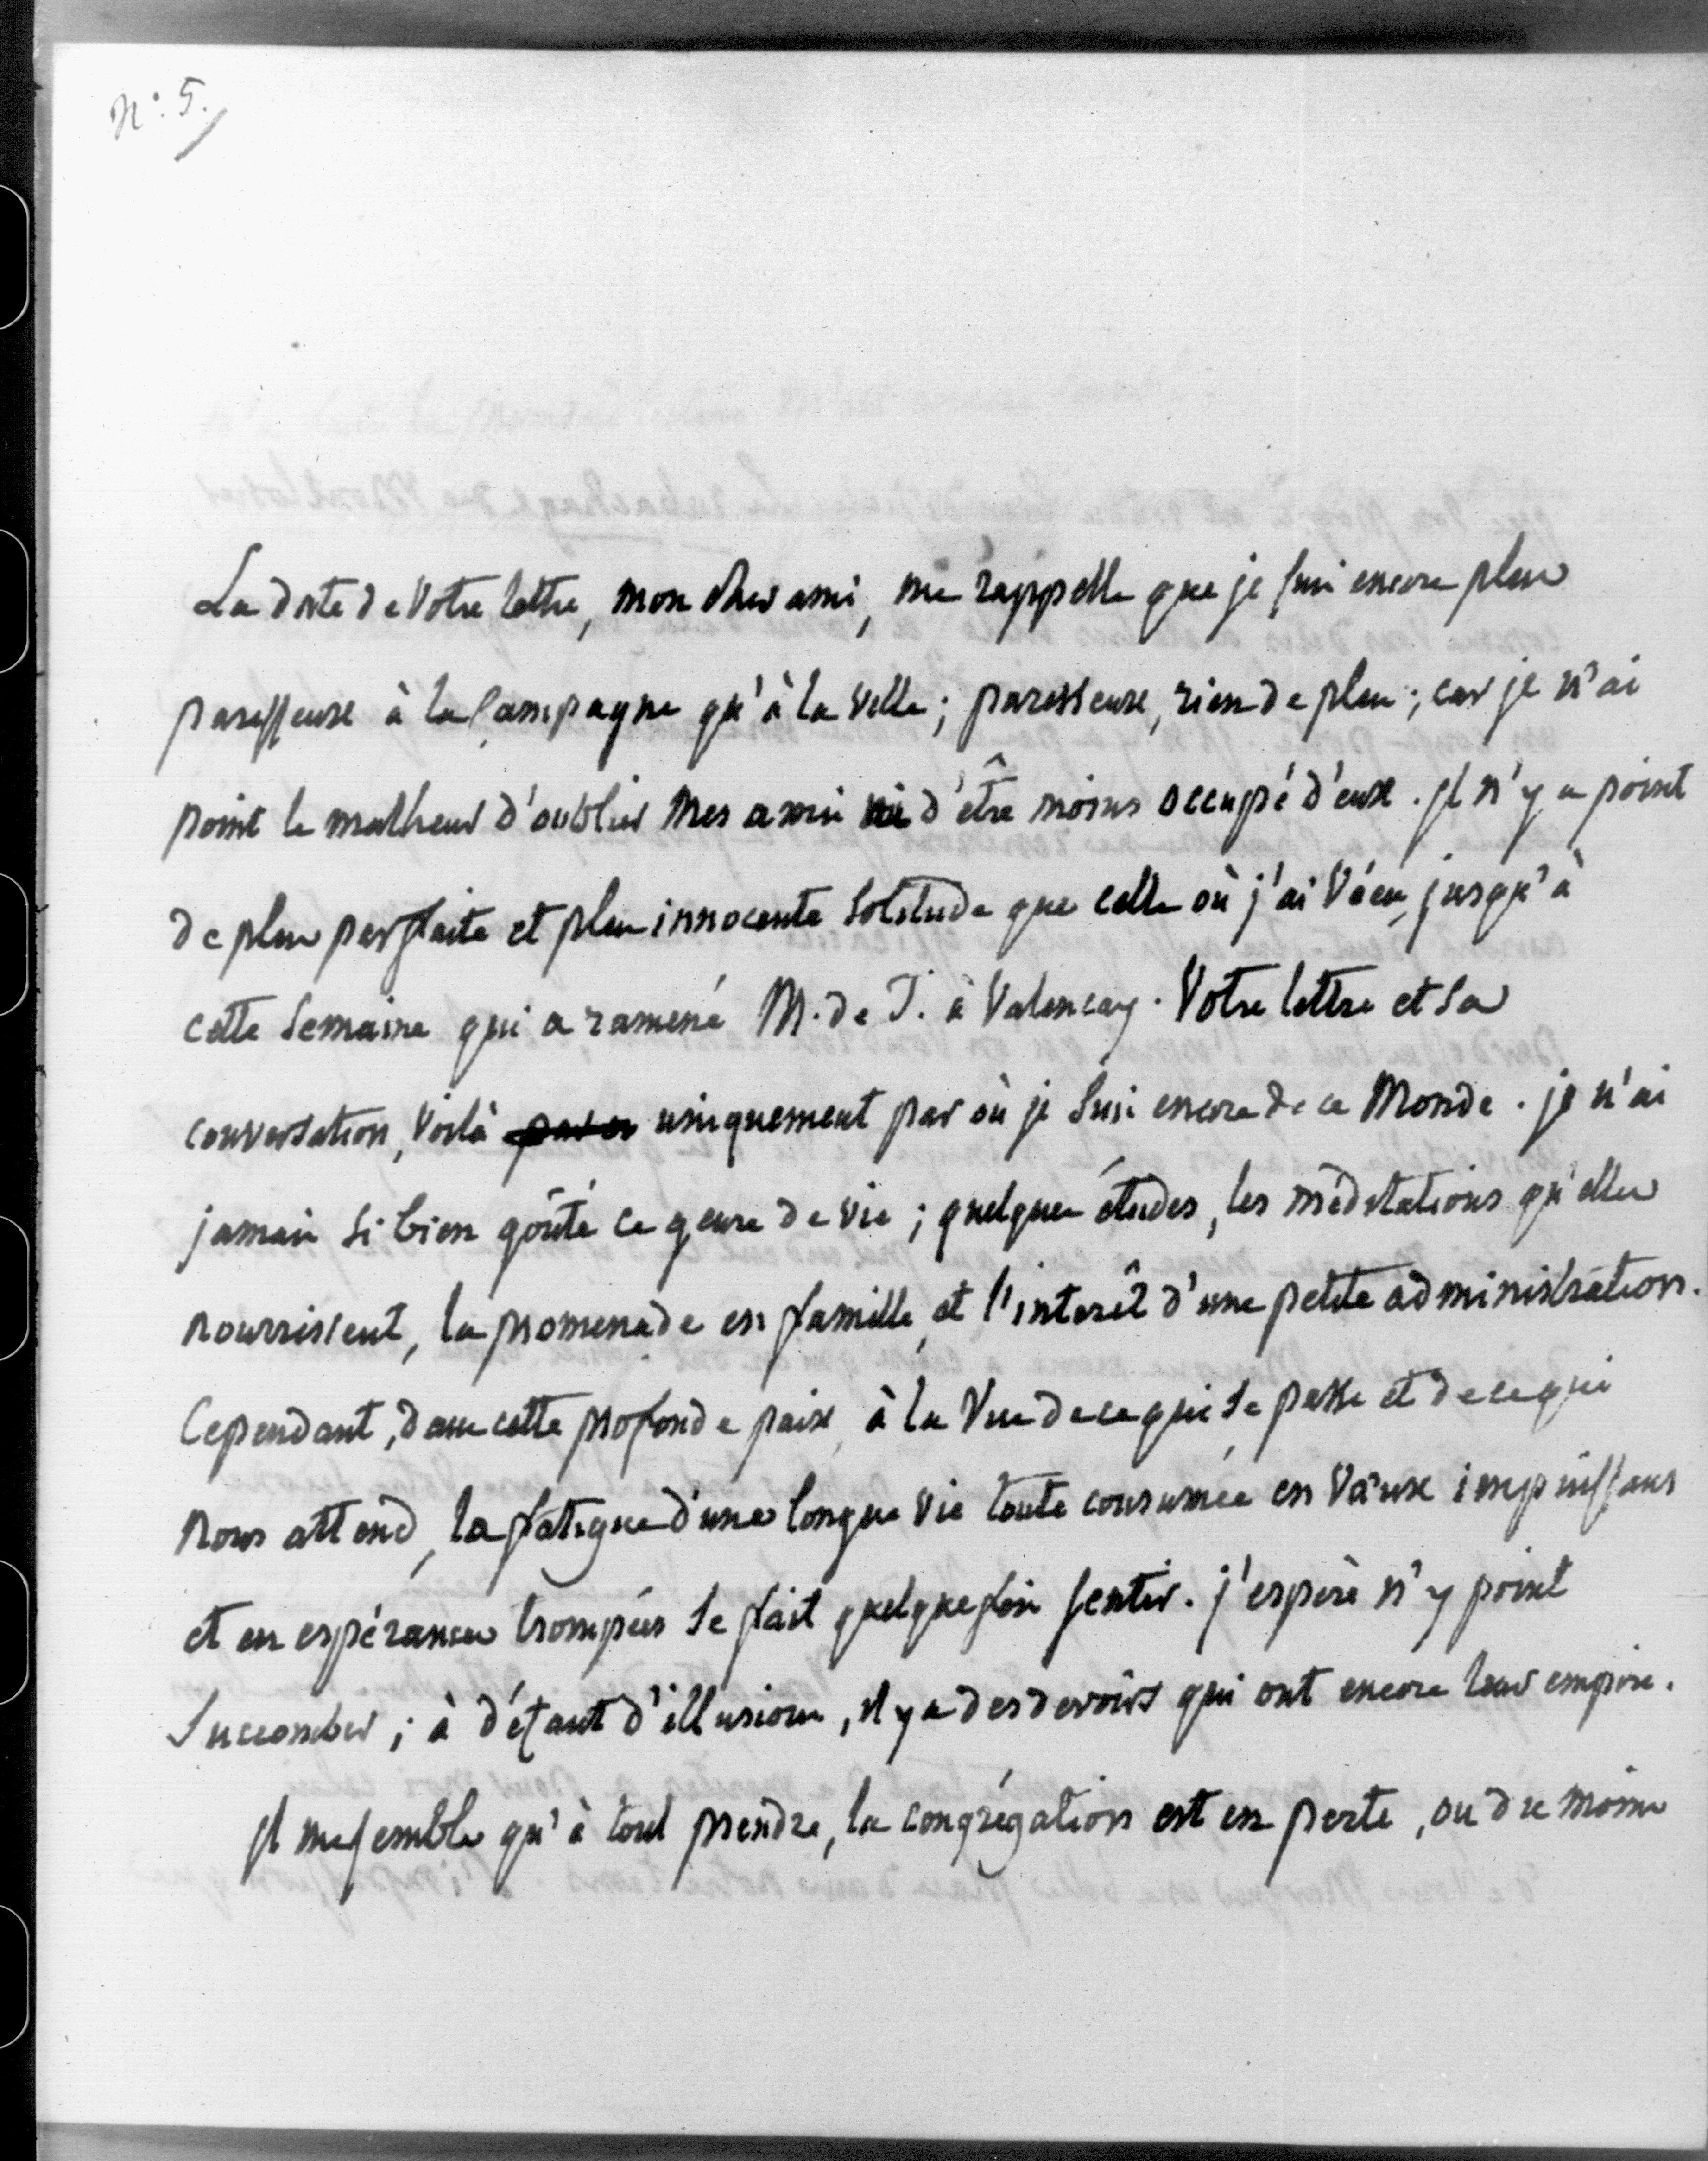 N°. 5.
La date de Votre lettre, mon cher ami, me rappelle que je suis encore plus
paresseux à la Campagne qu'à la Ville ; paresseux, rien de plus ; car je n'ai
point le malheur d'oublier mes amis ni d'être moins occupé d'eux. Il n'y a point
de plus parfaite et plus innocente Solitude que celle où j'ai Vécu, jusqu'à
cette Semaine qui a ramené M. de T. à Valençay. Votre lettre et sa
conversation, Voilà uniquement par où je Suis encore de ce Monde. je n'ai
jamais Si bien goûté ce genre de vie ; quelques études, les méditations qu'elles
nourrissent, la promenade en famille, et l'interêt d'une petite administration.
Cependant, dans cette profonde paix, à la Vue de ce qui Se passe et de ce qui
nous attend, la fatigue d'une longue vie toute consumée en Vœux impuissans
et en espérances trompées Se fait quelquefois sentir. j'espère n'y point
Succomber ; à défaut d'illusions, il y a des devoirs qui ont encore leur empire.
Il me semble qu'à tout prendre, la congrégation est en perte, ou du moins